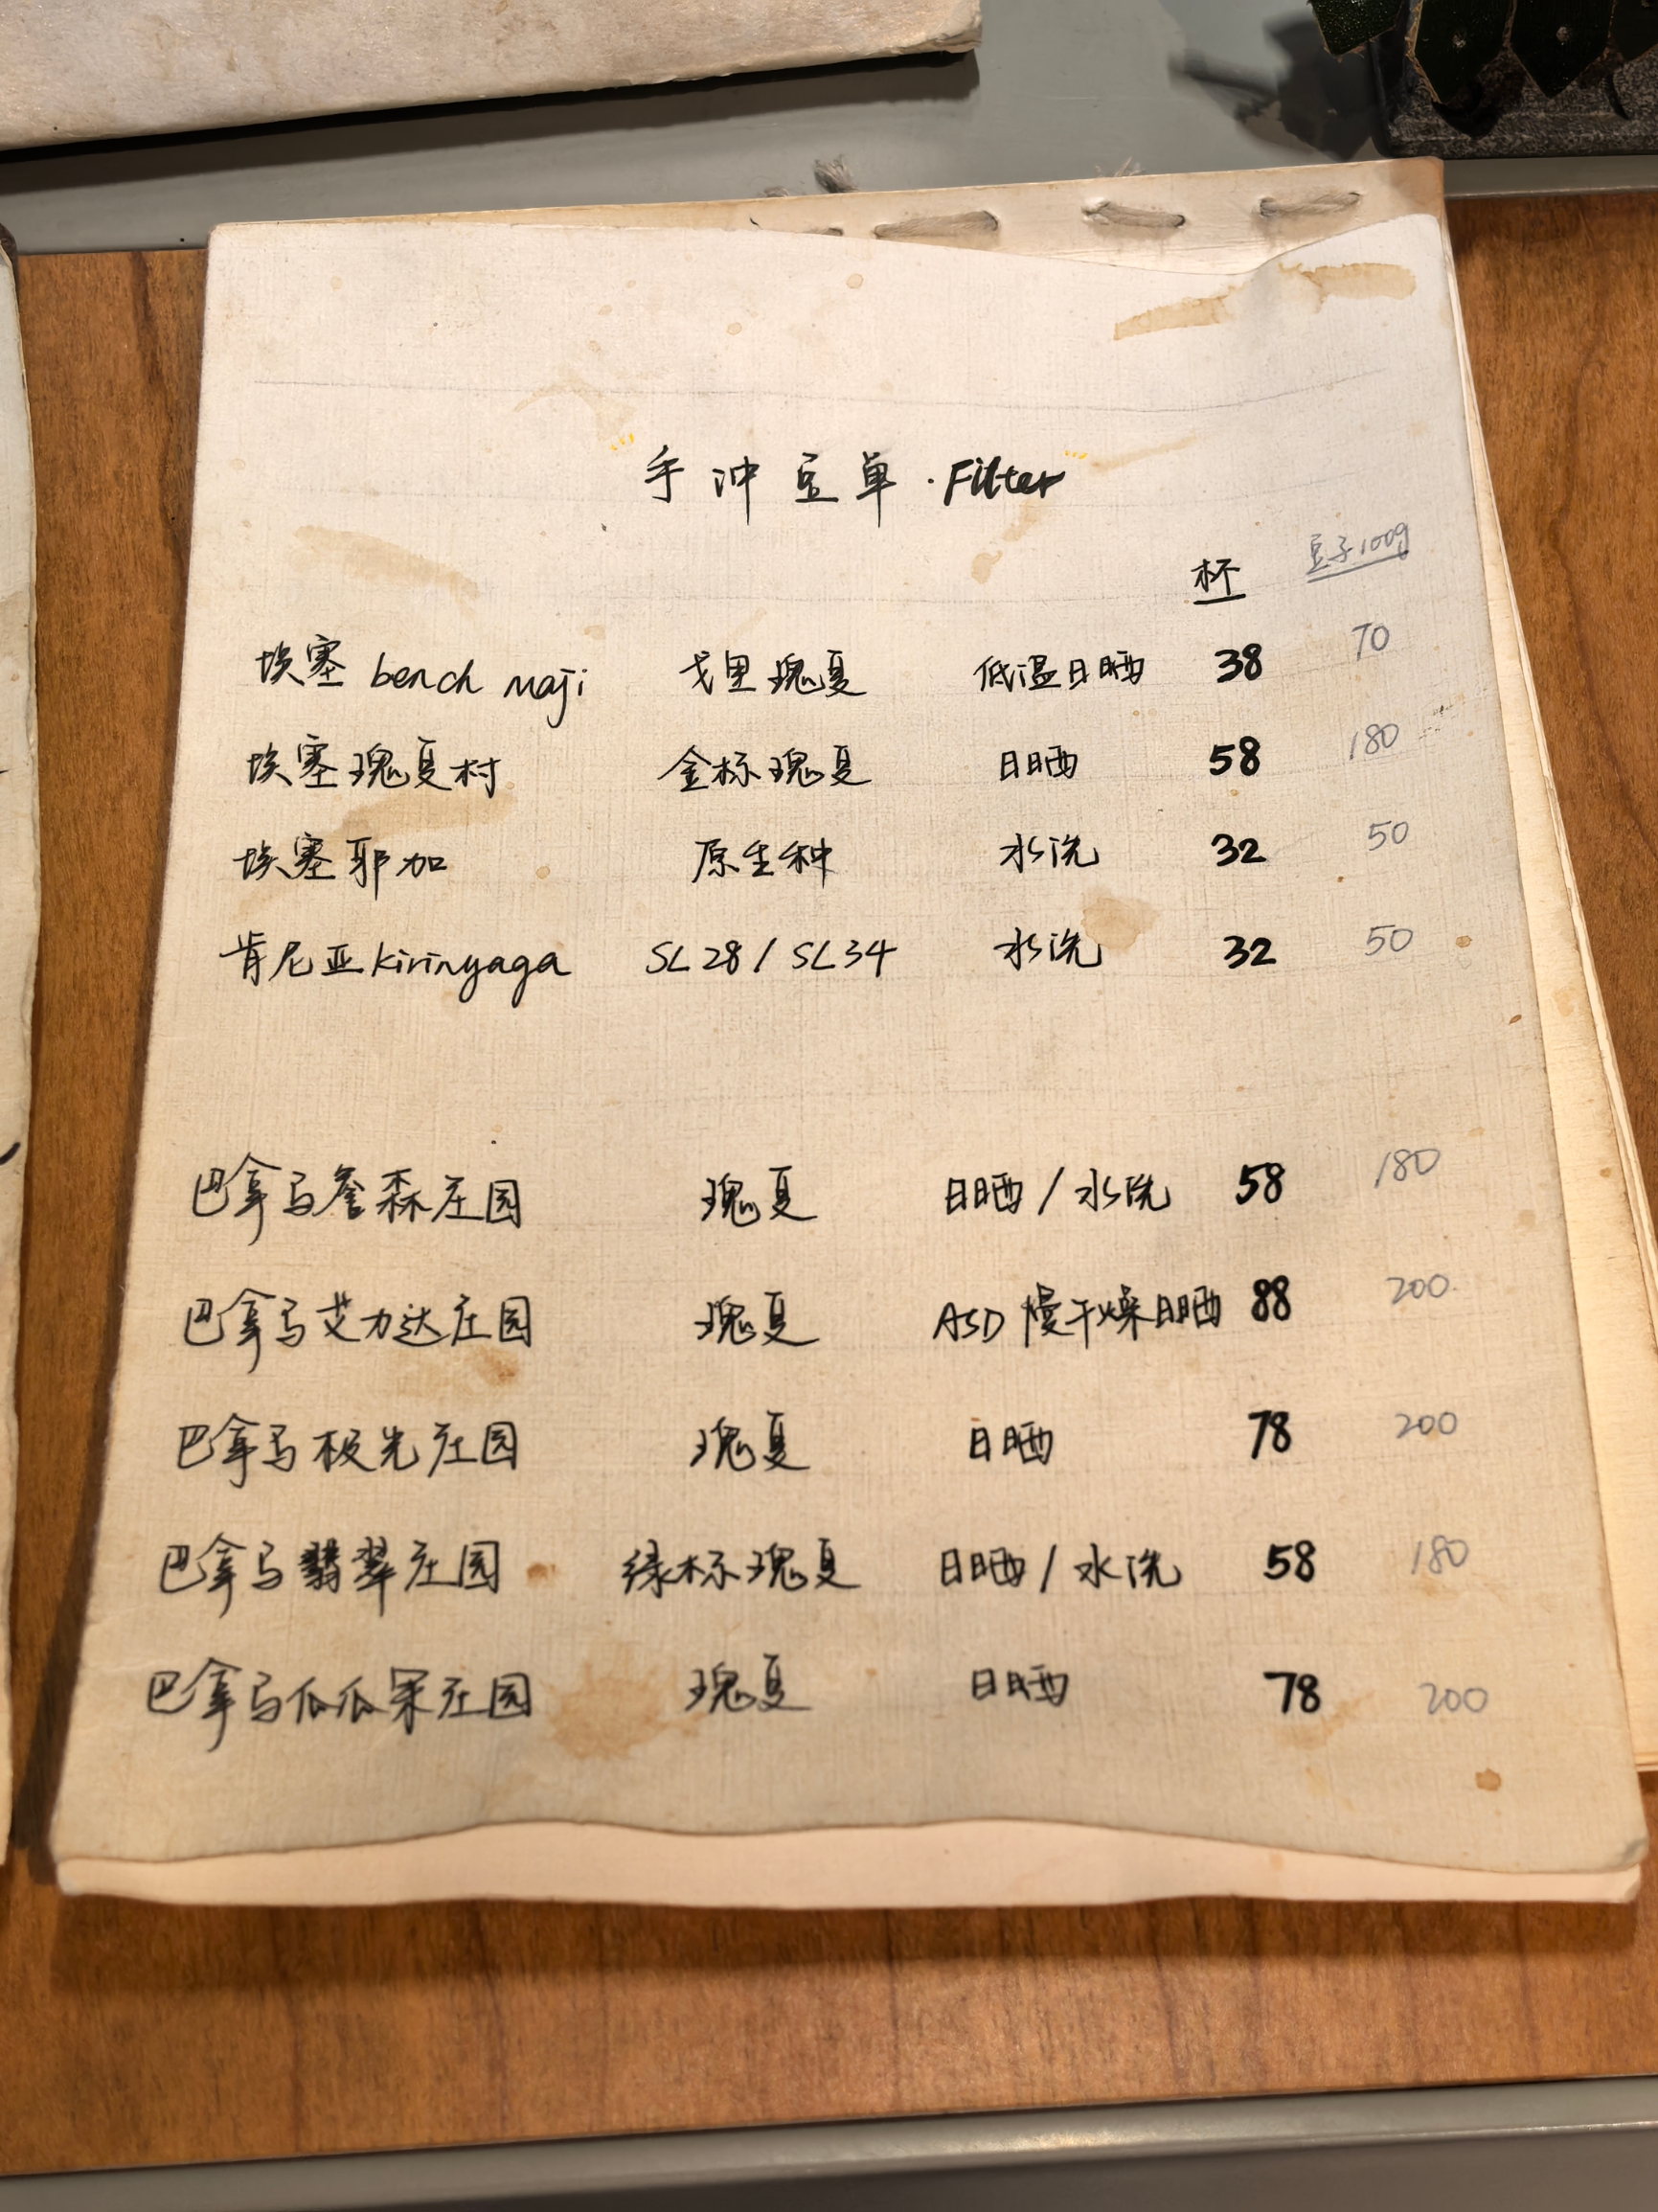 手冲豆单·Filter
杯 豆子100g
埃塞 bench maji 戈里瑰夏 低温日晒 38 70
埃塞瑰夏村 金标瑰夏 日晒 58 180
埃塞耶加 原生种 水洗 32 50
肯尼亚kirinyaga SL28/SL34 水洗 32 50
巴拿马詹森庄园 瑰夏 日晒/水洗 58 180
巴拿马艾力达庄园 瑰夏 ASD 慢干燥日晒 88 200
巴拿马极光庄园 瑰夏 日晒 78 200
巴拿马翡翠庄园 绿标瑰夏 日晒/水洗 58 180
巴拿马瓜瓜果庄园 瑰夏 日晒 78 200